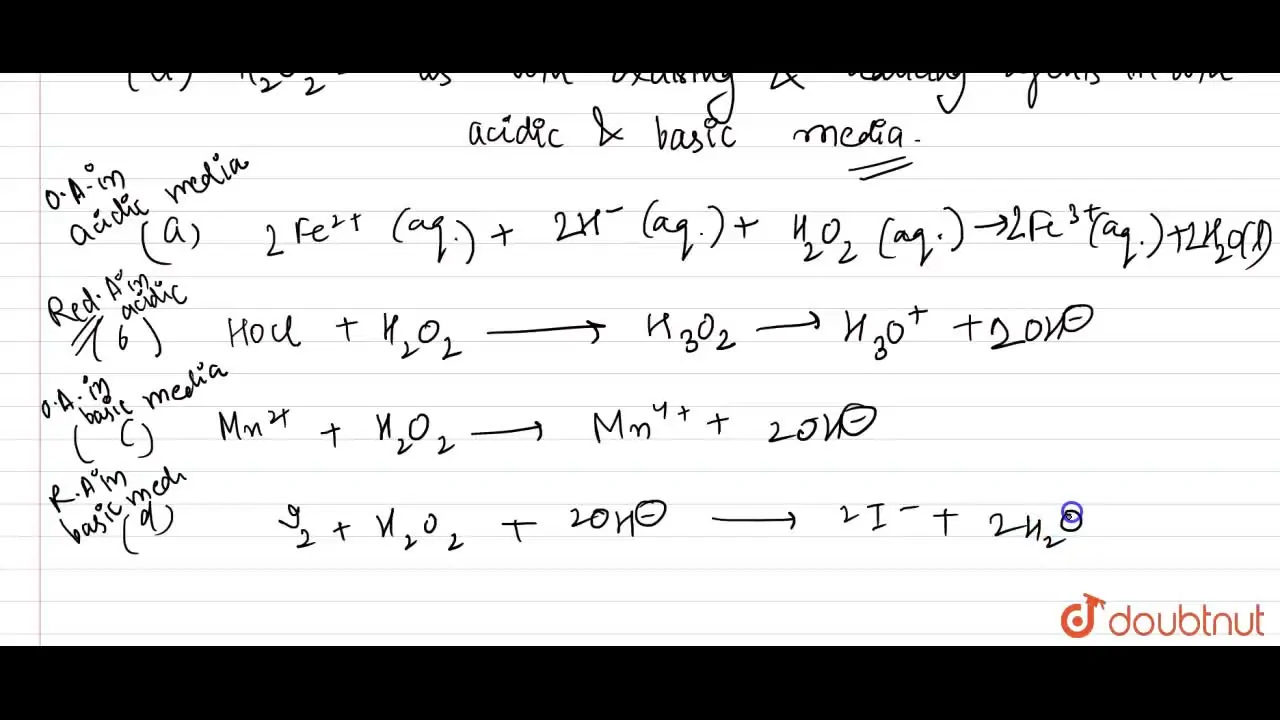 (a) H2O2 as both oxidising & reducing agents in both
acidic & basic media.
O.A. in acidic media
(a) 2Fe²⁺ (aq.) + 2H⁻ (aq.) + H₂O₂ (aq.) → 2Fe³⁺ (aq.) + 2H₂O(l)
Red. A in acidic
(b) HOCl + H₂O₂ ⟶ H₃O₂ ⟶ H₃O⁺ + 2OH⊖
O.A. in basic media
(c) Mn²⁺ + H₂O₂ ⟶ Mn⁴⁺ + 2OH⊖
R.A in basic medi
(d) I₂ + H₂O₂ + 2OH⊖ ⟶ 2I⁻ + 2H₂O
doubtnut